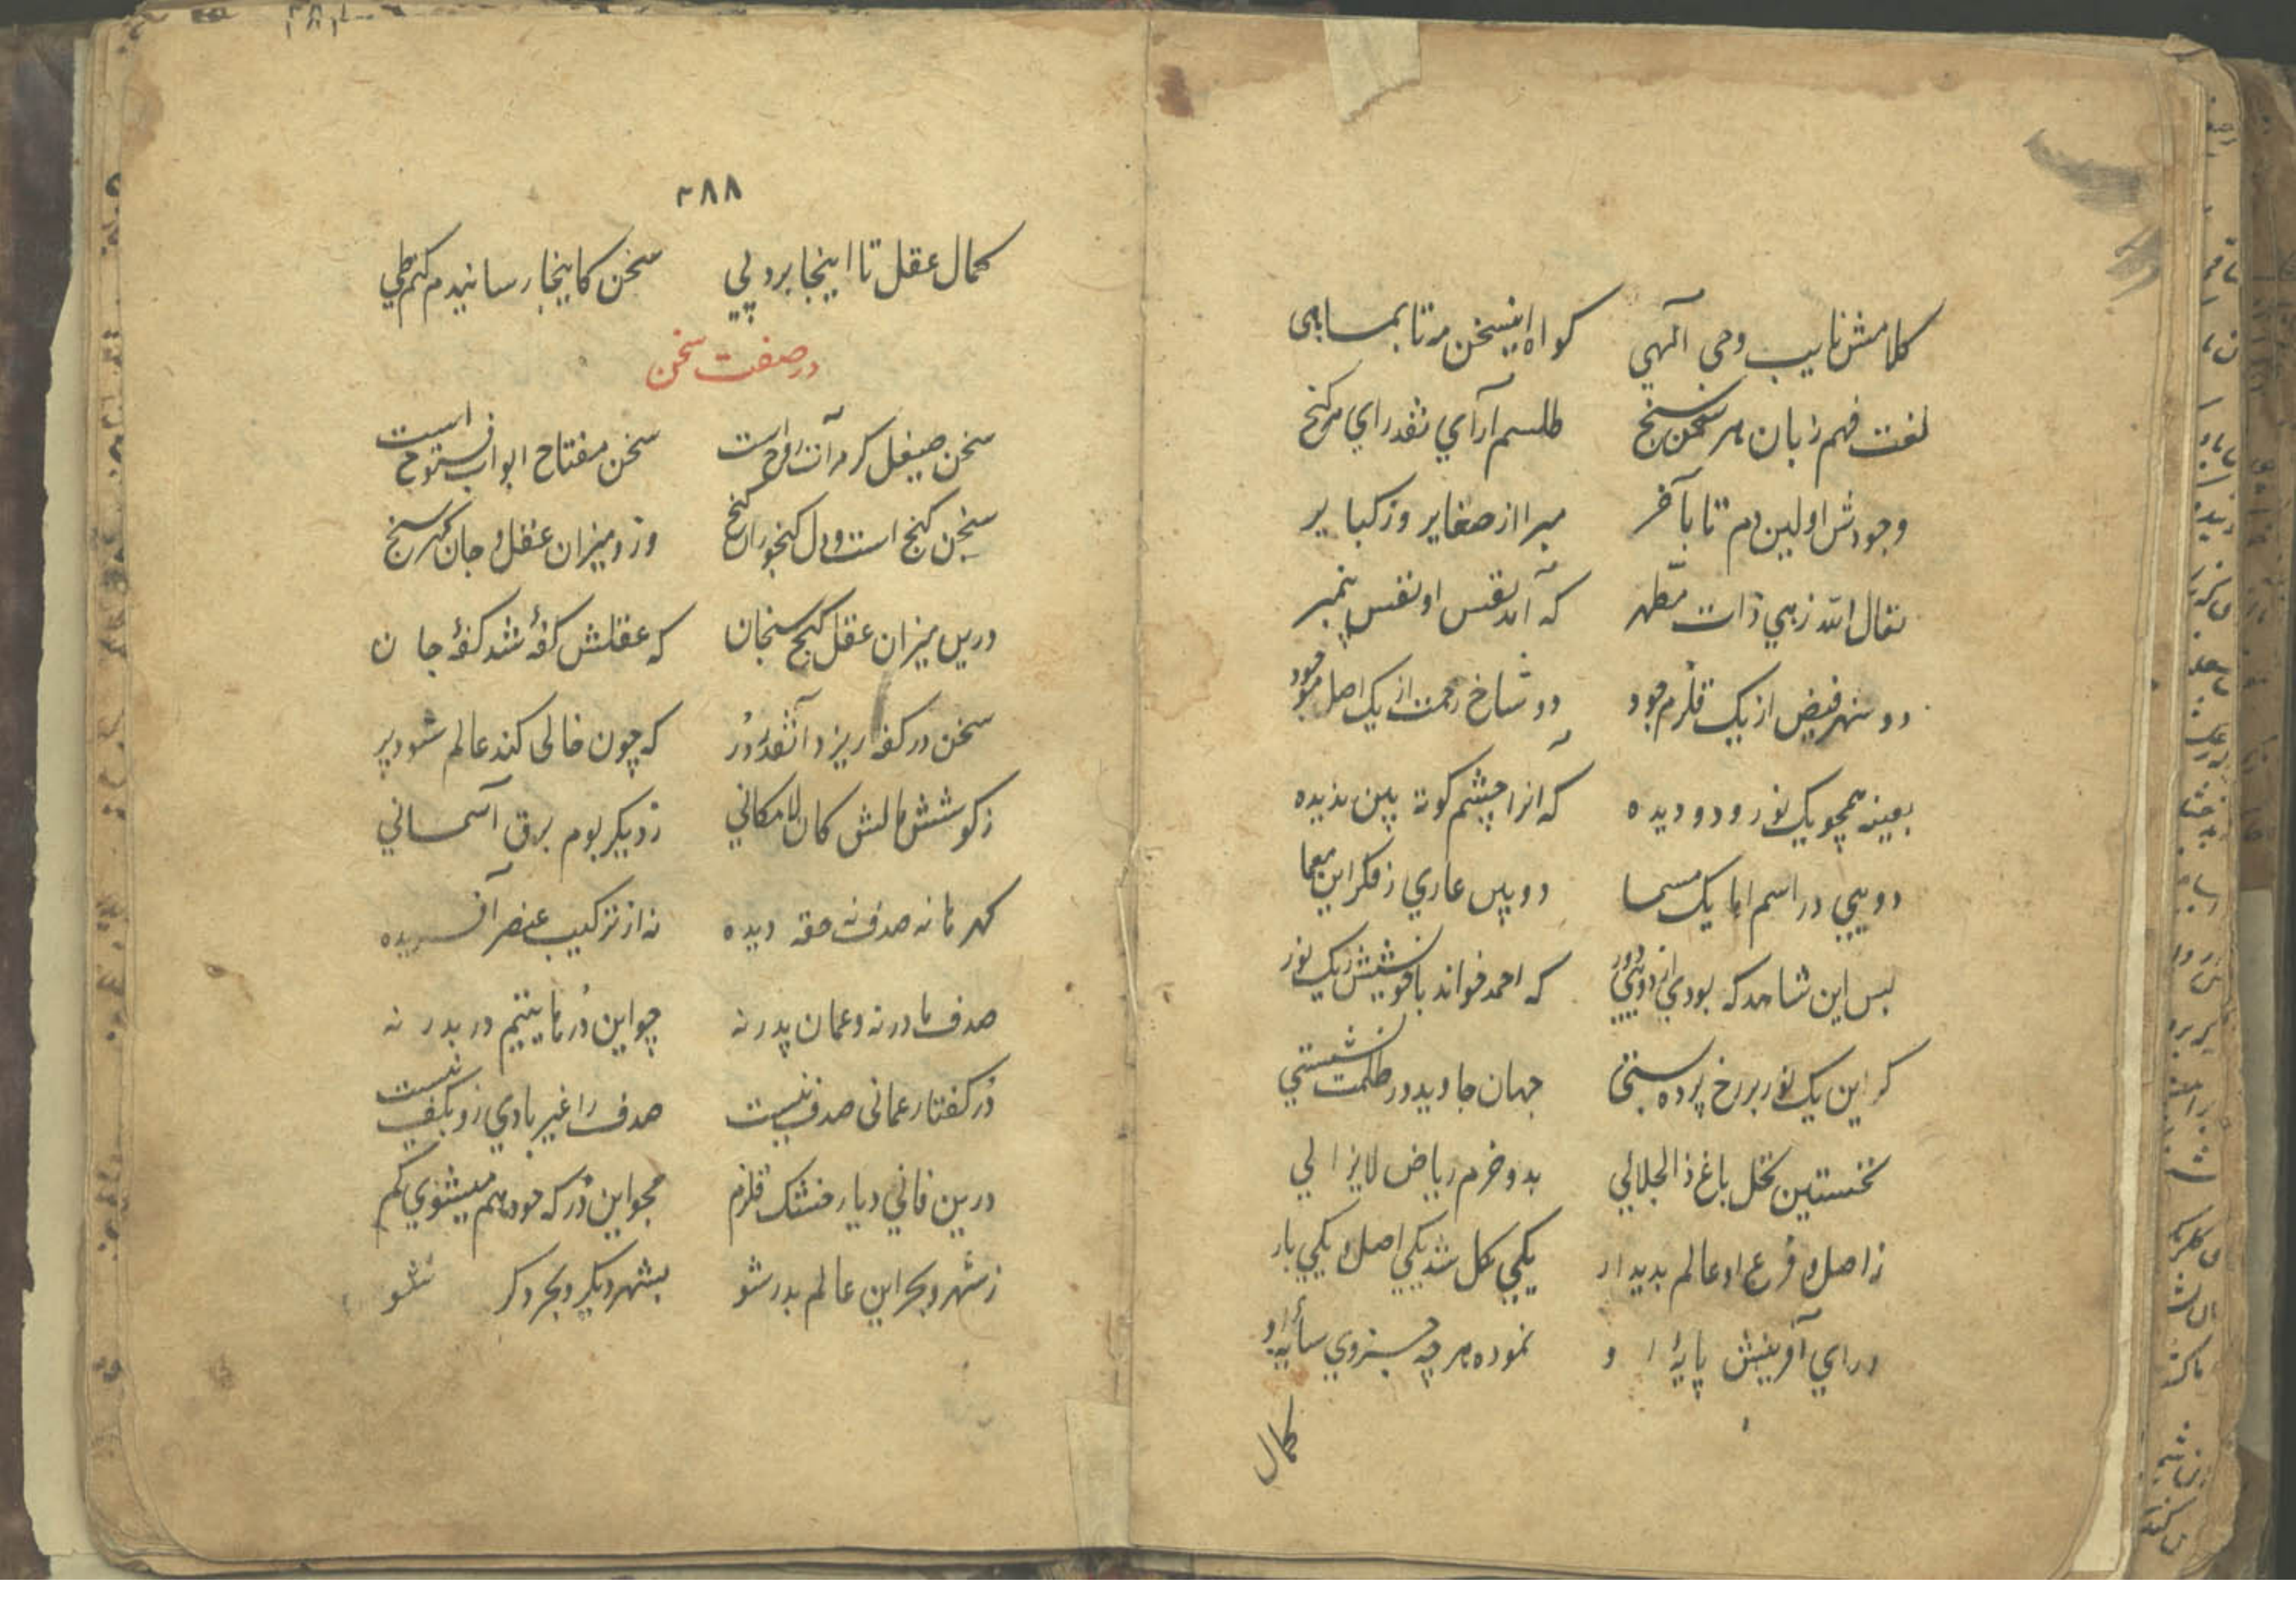 کلامش نایب وحی آلهی کواه اینسخن مه تا بماهی
لغت فهم زبان هر سخن سنج طلسم آرای نقد رای هر کنج
وجودش اولین دم تا بآخر مبرا از صغایر وز کبایر
تعال الله زهی ذات مطهر که آمد نفس او نفس پیمبر
دو نهر فیض از یک قلزم جود دو شاخ رحمت از یک اصل موجود
بعینه همچو یک نور و دو دیده که آنرا چشم کوته بین ندیده
دویی در اسم اما یک مسما دو بین عاری ز فکر این معما
بس این شاهد که بودی از دویی دور که احمد خواند با خویشش ز یک نور
کر این یک نور بر رخ پرده بستی جهان جاوید در ظلمت نشستی
نخستین نخل باغ ذالجلالی بدو خرم ریاض لایزالی
ز اصل و فرع او عالم بدیدار یکی کل شد یکی اصل و یکی بار
ورای آفرینش پایهٔ او نموده هر چه جستزوی سایهٔ او
کمال
۳۸۸
کمال عقل تا اینجا برد پی سخن کاینجا رسانیدم کنم طی
در صفت سخن
سخن صیقل کر مرآت روح است سخن مفتاح ابواب فتوح است
سخن کنج است و دل کنجور این کنج وزو میزان عقل و جان کهر سنج
درین میزان عقل کنج سنجان که عقلش کفهٔ شد کفهٔ جان
سخن در کفه ریزد آنقدر دُر که چون خالی کند عالم شود پر
نه کوشش مالش کان لامکانی ز دیکر بوم برق آسمانی
کهر ها نه صدف نه حقه دیده نه از ترکیب عنصر آفریده
صدف مادر نه و عمان پدر نه چو این دُرها یتیم در بدر نه
دُر کفتار عمانی صدف نیست صدف را غیر بادی زو بکف نیست
درین فانی دیار خشک قلزم مجو این دُر که خود هم میشوی کم
ز شهر و بحر این عالم بدر شو بشهر دیکر و بحر دکر شو